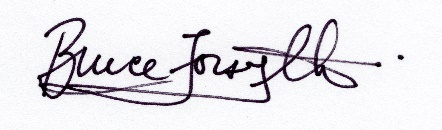 Bruce Forsyth